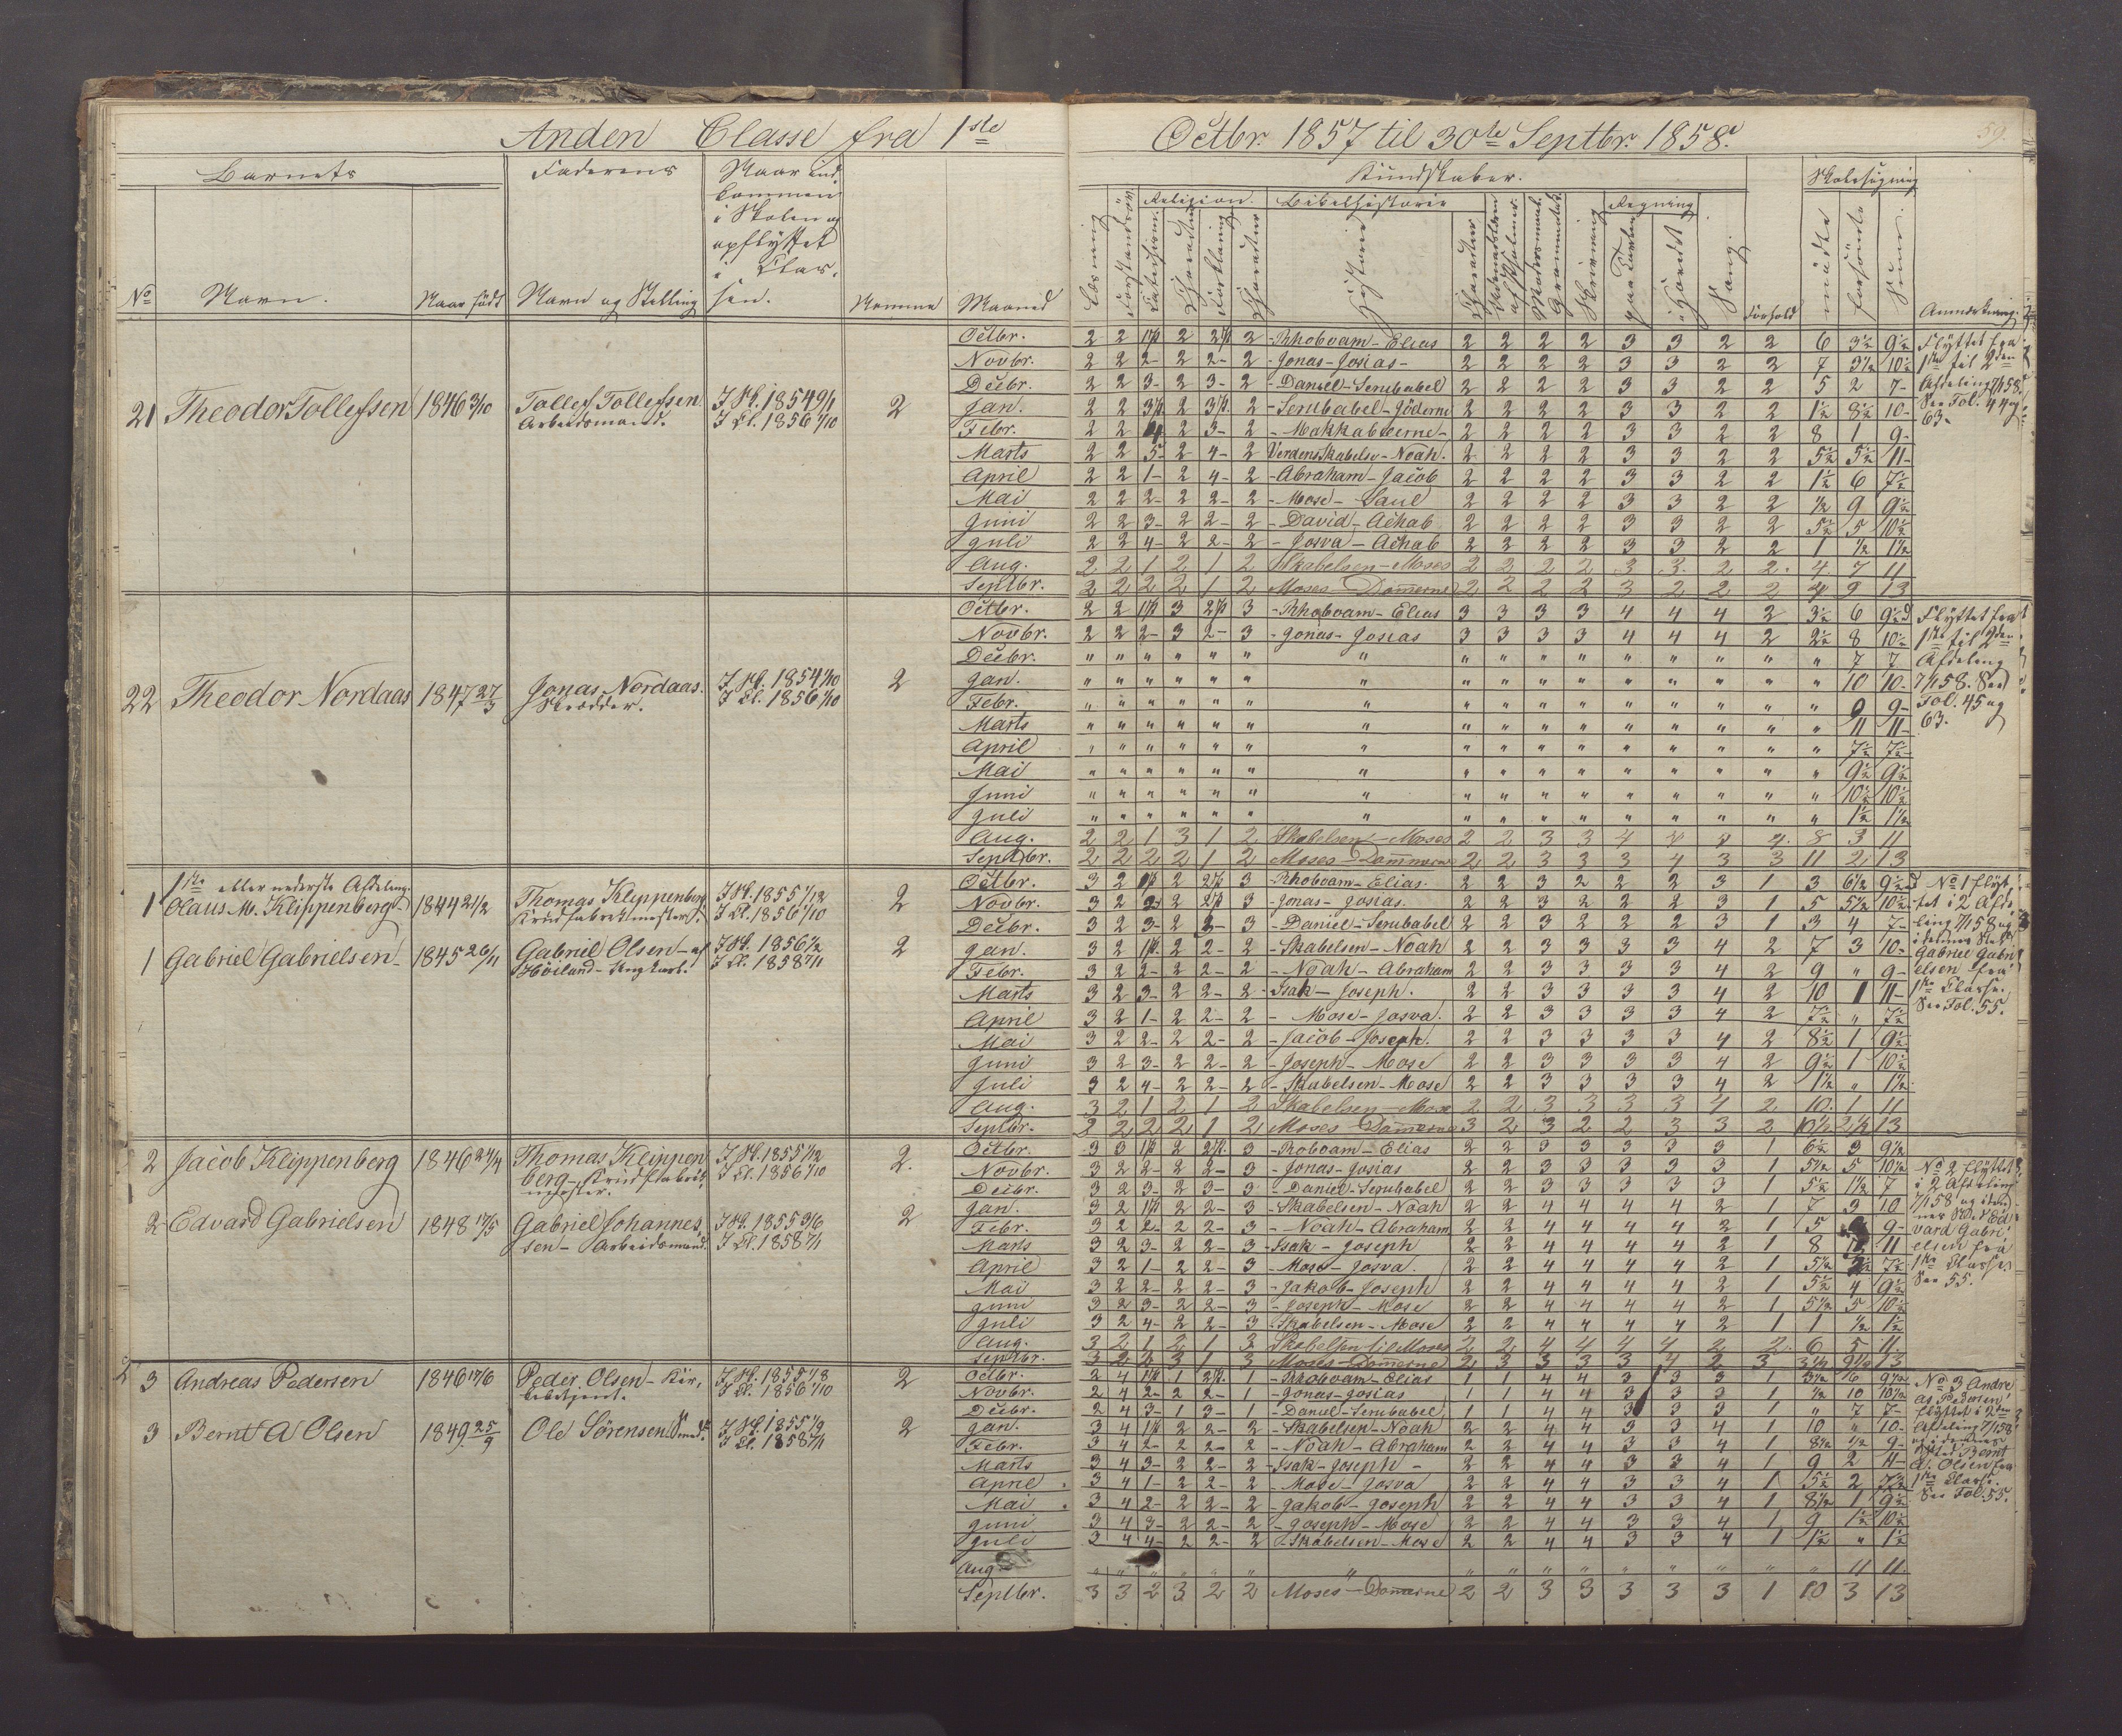 Anden Classe fra 1ste Octbr. 1857 til 30te Septbr. 1858.
59.
Barnets
Faderens
Naar ind
kommen
i Skolen og
opflyttet
i Clas-
sen.
Kundskaber.
Skolesøgning
Religion.
Bibelhistorie
Regning
No
Navn.
Naar født
Navn og Stilling
Maaned
Læsning
Historie
Skrivning
Sang.
Forhold
mødte
forsømte
Sum.
Anmærkning.
21 Theodor Tollefsen 1846 3/10 Tollef Tollefsen
Arbeidsmand.
I Sk. 1854 9/1
I Cl. 1856 1/10
2
Octbr. 2 2 2 2 - Rhoboam - Elias 2 2 2 2 3 3 2 2 6 3½ 9½
Novbr. 2 2 2- 2 2- 2 - Jonas - Josias - 2 2 2 2 3 3 2 2 7 3½ 10½
Decbr. 2 2 3- 2 3- 2 - Daniel - Serubabel 2 2 2 2 3 3 2 2 5 2 7-
Jan. 2 2 2 2 - Serubabel - Jöderne 2 2 2 2 3 3 2 2 1½ 8½ 10-
Febr. 2 2 4 2 3- 2 - Makkabæerne - 2 2 2 2 3 3 2 2 8 1 9-
Marts 2 2 5- 2 4- 2 Verdens Skabelse - Noah. 2 2 2 2 3 3 2 2 5½ 5½ 11-
April 2 2 1- 2 4- 2 - Abraham - Jacob 2 2 2 2 3 3 2 2 1½ 6 7½
Mai 2 2 2- 2 2- 2 - Mose - Saul 2 2 2 2 3 3 2 2 ½ 9 9½
Juni 2 2 3- 2 2- 2 - David - Achab 2 2 2 2 3 3 2 2 5½ 5 10½
Juli 2 2 4- 2 2- 2 - Josva - Achab 2 2 2 2 3 3 2 2 1 ½ 1½
Aug. 2 2 1 2 1 2 Skabelsen - Moses 2 2 2 2 3 3 2 2 4 7 11
Septbr. 2 2 2 2 1 2 Moses - Dommerne 2 2 2 2 3 2 2 2 4 9 13
Flyttet fra
1ste til 2den
Afdeling 7/1 58.
See Fol. 44 og
63.
22 Theodor Nordaas 1847 27/3 Jonas Nordaas.
Skrædder.
I Sk. 1854 1/10
I Cl. 1856 1/10
2
Octbr. 2 2 3 3 - Rhoboam - Elias 3 3 3 3 4 4 4 2 3½ 6 9½
Novbr. 2 2 2- 3 2- 3 - Jonas - Josias 3 3 3 3 4 4 4 2 2½ 8 10½
Decbr. " " " " " " " " " " " " " " " " 7 7
Jan. " " " " " " " " " " " " " " " " 10 10-
Febr. " " " " " " " " " " " " " " " " 9 9-
Marts " " " " " " " " " " " " " " " " 11 11-
April " " " " " " " " " " " " " " " " 7½ 7½
Mai " " " " " " " " " " " " " " " " 9½ 9½
Juni " " " " " " " " " " " " " " " " 10½ 10½
Juli " " " " " " " " " " " " " " " " 1½ 1½
Aug. 2 2 1 3 1 2 Skabelsen - Moses 2 2 3 3 4 4 8 3 11
Septbr. 2 2 2 2 1 2 Moses - Dommerne 2 2 3 3 3 4 3 3 11 2 13
Flyttet fra
1ste til 2den
Afdeling
7/1 58. See
Fol. 45 og
63.
1ste eller nederste Afdeling.
1 Olaus M. Klippenberg 1844 21/2 Thomas Klippenberg
Krudfabrikmester.
I Sk. 1855 1/12
I Cl. 1856 1/10
2
1 Gabriel Gabrielsen 1845 26/11 Gabriel Olsen - af
Höiland -
I Sk. 1856 1/2
I Cl. 1858 7/1
2
Octbr. 3 2 2 3 - Rhoboam - Elias. 2 2 3 2 2 2 3 1 3 6½ 9½
Novbr. 3 2 2 3 - Jonas - Josias. 2 2 3 2 2 2 3 1 5 5½ 10½
Decbr. 3 2 3- 2 3- 3 - Daniel - Serubabel 2 2 3 2 2 2 3 1 3 4 7-
Jan. 3 2 2 2- 2 - Skabelsen - Noah 2 2 3 3 3 3 4 2 7 3 10-
Febr. 3 2 2- 2 2- 2 - Noah - Abraham 2 2 3 3 3 3 4 2 9 " 9-
Marts 3 2 3- 2 2- 2 - Isak - Joseph. 2 2 3 3 3 3 4 2 10 1 11-
April 3 2 1- 2 2- 2 - Mose - Josva. 2 2 3 3 3 3 4 2 7½ " 7½
Mai 3 2 2- 2 2- 2 - Jacob - Joseph. 2 2 3 3 3 3 4 2 8½ 1 9½
Juni 3 2 3- 2 2- 2 - Joseph - Mose 2 2 3 3 3 3 4 2 9½ 1 10½
Juli 3 2 4- 2 2- 2 - Skabelsen - Mose 2 2 3 3 3 3 4 2 1½ " 1½
Aug. 3 2 1 2 1 2 Skabelsen - Mose 2 2 3 3 3 3 4 2 10 1 11
Septbr. 2 2 2 2 1 2 Moses - Dommerne 3 2 3 2 2 3 3 2 10½ 2½ 13
No 1 flyt-
tet i 2 Afde
ling 7/1 58 og
i dennes Sted
Gabriel Gabri
elsen fra
1ste Classe.
See Fol. 55.
2 Jacob Klippenberg 1846 24/4 Thomas Klippen
berg - Krudfabrik-
mester.
I Sk. 1855 1/12
I Cl. 1856 1/10
2.
2 Edvard Gabrielsen 1848 17/5 Gabriel Johannes
sen - Arbeidsmand.
I Sk. 1855 3/6
I Cl. 1858 7/1
2
Octbr. 3 3 2 3 - Roboam - Elias 2 2 3 3 3 3 3 1 6½ 3 9½
Novbr. 3 2 2- 2 2- 3 - Jonas - Josias 2 2 3 3 3 3 3 1 5½ 5 10½
Decbr. 3 2 3- 2 3- 3 - Daniel - Serubabel 2 2 3 3 3 3 3 1 5½ 1½ 7
Jan. 3 2 2 2- 3 - Skabelsen - Noah 2 2 4 4 4 4 2 1 7 3 10
Febr. 3 2 2- 2 2- 3 - Noah - Abraham 2 2 4 4 4 4 2 1 5 9-
Marts 3 2 3- 2 2- 3 - Isak - Joseph 2 2 4 4 4 4 2 1 8 11
April 3 2 1- 2 2- 3 - Mose - Josva. 2 2 4 4 4 4 2 1 5½ 7½
Mai 3 2 2- 2 2- 3 - Jakob - Joseph 2 2 4 4 4 4 2 1 5½ 4 9½
Juni 3 2 3- 2 2- 3 - Joseph - Mose 2 2 4 4 4 4 2 1 5½ 5 10½
Juli 3 2 4- 2 2- 3 - Skabelsen - Mose 2 2 4 4 4 4 2 1 1 ½ 1½
Aug. 3 2 1 2 1 3 Skabelsen til Moses 2 2 4 4 4 4 2 2 6 5 11
Septbr. 3 2 2 3 1 3 Moses - Dommerne 2 3 3 3 3 4 2 3 3½ 9½ 13
No 2 flyttet
i 2 Afdeling
7/1 58 og i den
nes Sted Ed
vard Gabri
elsen fra
1ste Classe.
See 55.
3 Andreas Pedersen 1846 17/6 Peder Olsen -
I Sk. 1855 1/8
I Cl. 1856 1/10
2
3 Bernt A Olsen 1849 25/9 Ole Sörensen Smed.
I Sk. 1855 1/9
I Cl. 1858 7/1
2
Octbr. 2 4 1 1 - Rhoboam - Elias 1 1 4 4 3 3 3 1 3½ 6 9½
Novbr. 2 4 2- 2 2- 1 - Jonas - Josias 1 1 4 4 3 3 3 1 ½ 10 10½
Decbr. 2 4 3- 1 3- 1 - Daniel - Serubabel 1 1 4 4 3 3 3 1 " 7 7-
Jan. 3 4 2 2- 2 - Skabelsen - Noah 2 2 4 4 3 3 4 1 10 " 10-
Febr. 3 4 2- 2 2- 2 - Noah - Abraham 2 2 4 4 3 3 4 1 8½ ½ 9-
Marts 3 4 3- 2 2- 2 - Isak - Joseph - 2 2 4 4 3 3 4 1 9 2 11-
April 3 4 1- 2 2- 2 - Mose - Josva 2 2 4 4 3 3 4 1 5½ 2 7½
Mai 3 4 2- 2 2- 2 - Jakob - Joseph 2 2 4 4 3 3 4 1 8½ 1 9½
Juni 3 4 3- 2 2- 2 - Joseph - Mose 2 2 4 4 3 3 4 1 9 1½ 10½
Juli 3 4 4- 2 2- 2 - Skabelsen - Mose 2 2 4 4 3 3 4 1 1½ " 1½
Aug. " " " " " " " " " " " " " " " " 11 11.
Septbr. 3 3 2 3 2 2 Moses - Dommerne 2 2 3 3 3 3 3 1 10 3 13
No 3 Andre
as Pedersen
flyttet i 2den
Afdeling 7/1 58
og i dennes
Sted Bernt
A. Olsen fra
1ste Classe.
See Fol. 55.